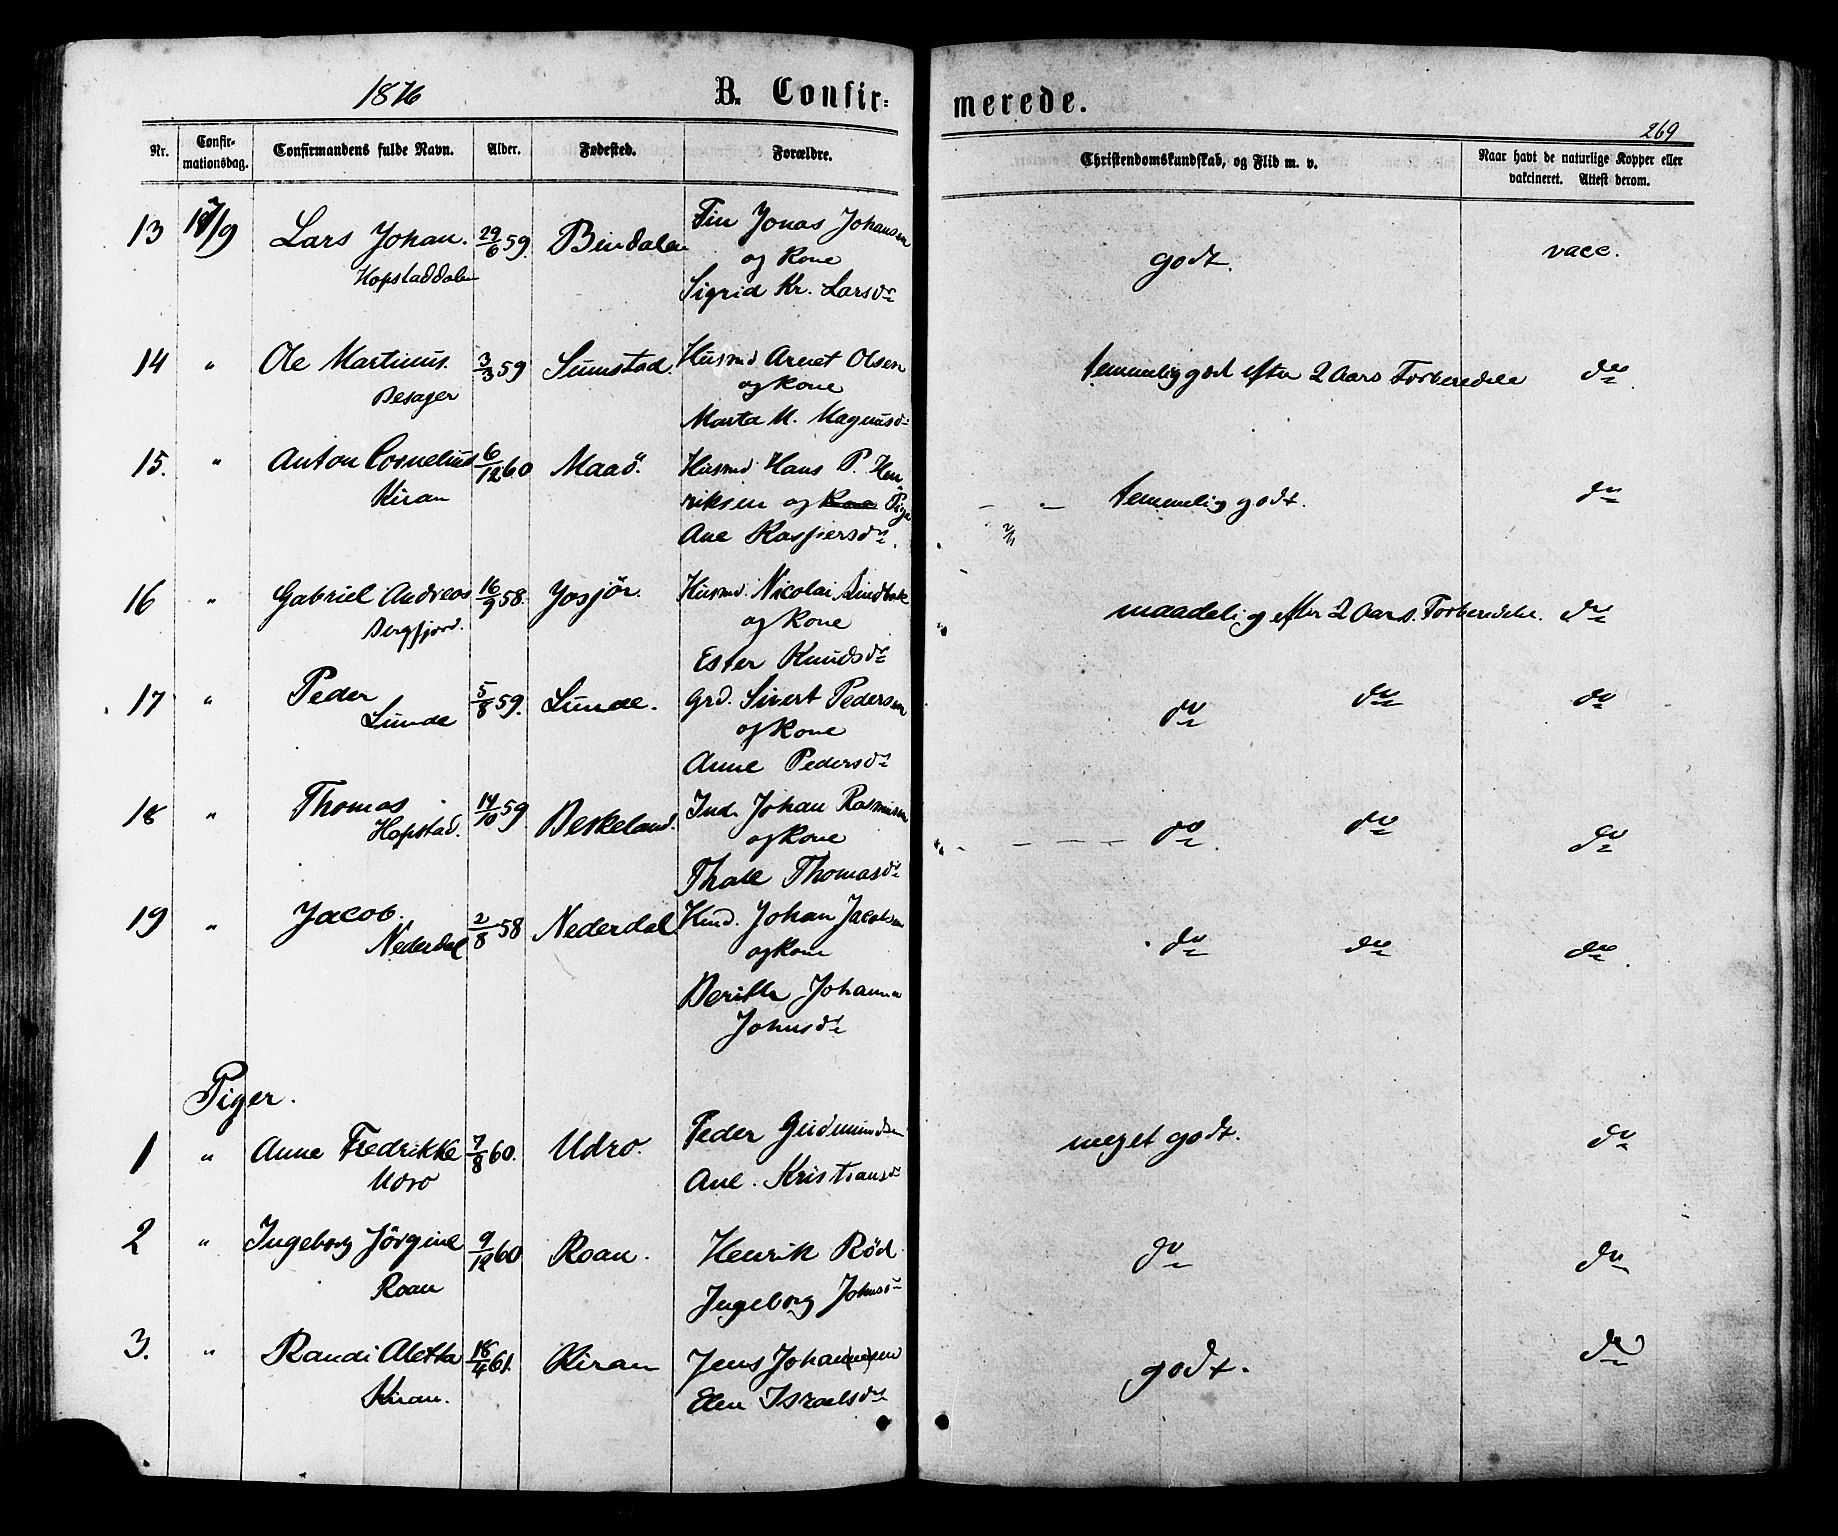 1876 B. Confir-
merede.
269
Nr. Confir-mationsdag. Confirmandens fulde Navn. Alder. Fødested. Forældre. Christendomskundskab, og Flid m. v. Naar havt de naturlige Kopper eller vakcineret. Attest derom.
13 17/9 Lars Johan. 29/6 59. Bindalen Fin Jonas Johansen godt. vacc.
Hopstaddalen og Kone
Sigrid Kr. Larsdr
14 " Ole Martinus. 3/3 59 Sumstad. Husmd Arnet Olsen temmelig god efter 2 Aars Forberedele do
Besager og Kone
Marta M. Magnusdr
15. " Anton Cornelius 6/12 60 Maaö. Husmd. Hans P. Hen-
Kiran riksen og Kone Pige temmelig godt. do
Ane Kaspersdr.
16 " Gabriel Andreas 16/9 58. Josjør. Husmd. Nicolai maadelig efter 2 Aars. Forberedelse. do
Bergfjord. og Kone
Ester Knudsdr
17 " Peder 5/8 59. Lunde. Grd. Sivert Pedersen do do do
Lunde og Kone
Anne Pedersdr
18 " Thomas 14/10 59. Beskeland. Ind. Johan Rasmussen do do do
Hopstad. og Kone
Thale Thomasdr
19 " Jacob. 2/8 58 Nederdal Johan Jacobsen do do do
Nederdal og Kone
Beritha Johanna
Johnsdr
Piger.
1 " Anne Fredrikke 7/8 60. Udro. Peder Gudmundsen meget godt. do
Udro Ane. Kristiansdr
2 " Ingeborg Jörgine 9/12 60 Roan. Henrik Rød do do
Roan Ingeborg Johnsdr
3. " Randi Aletta 18/4 61. Kiran Jens Johan(ne)sen godt. do
Kiran. Elen Israelsdr